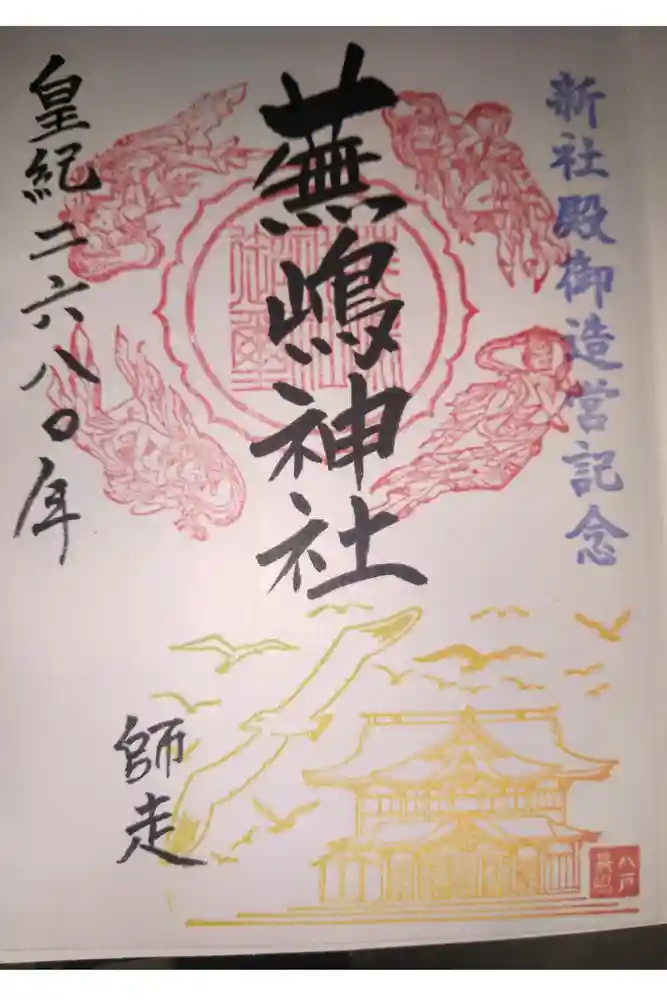 新社殿御造営記念
蕪嶋神社
皇紀二六八〇年
師走
八戸
蕪嶋